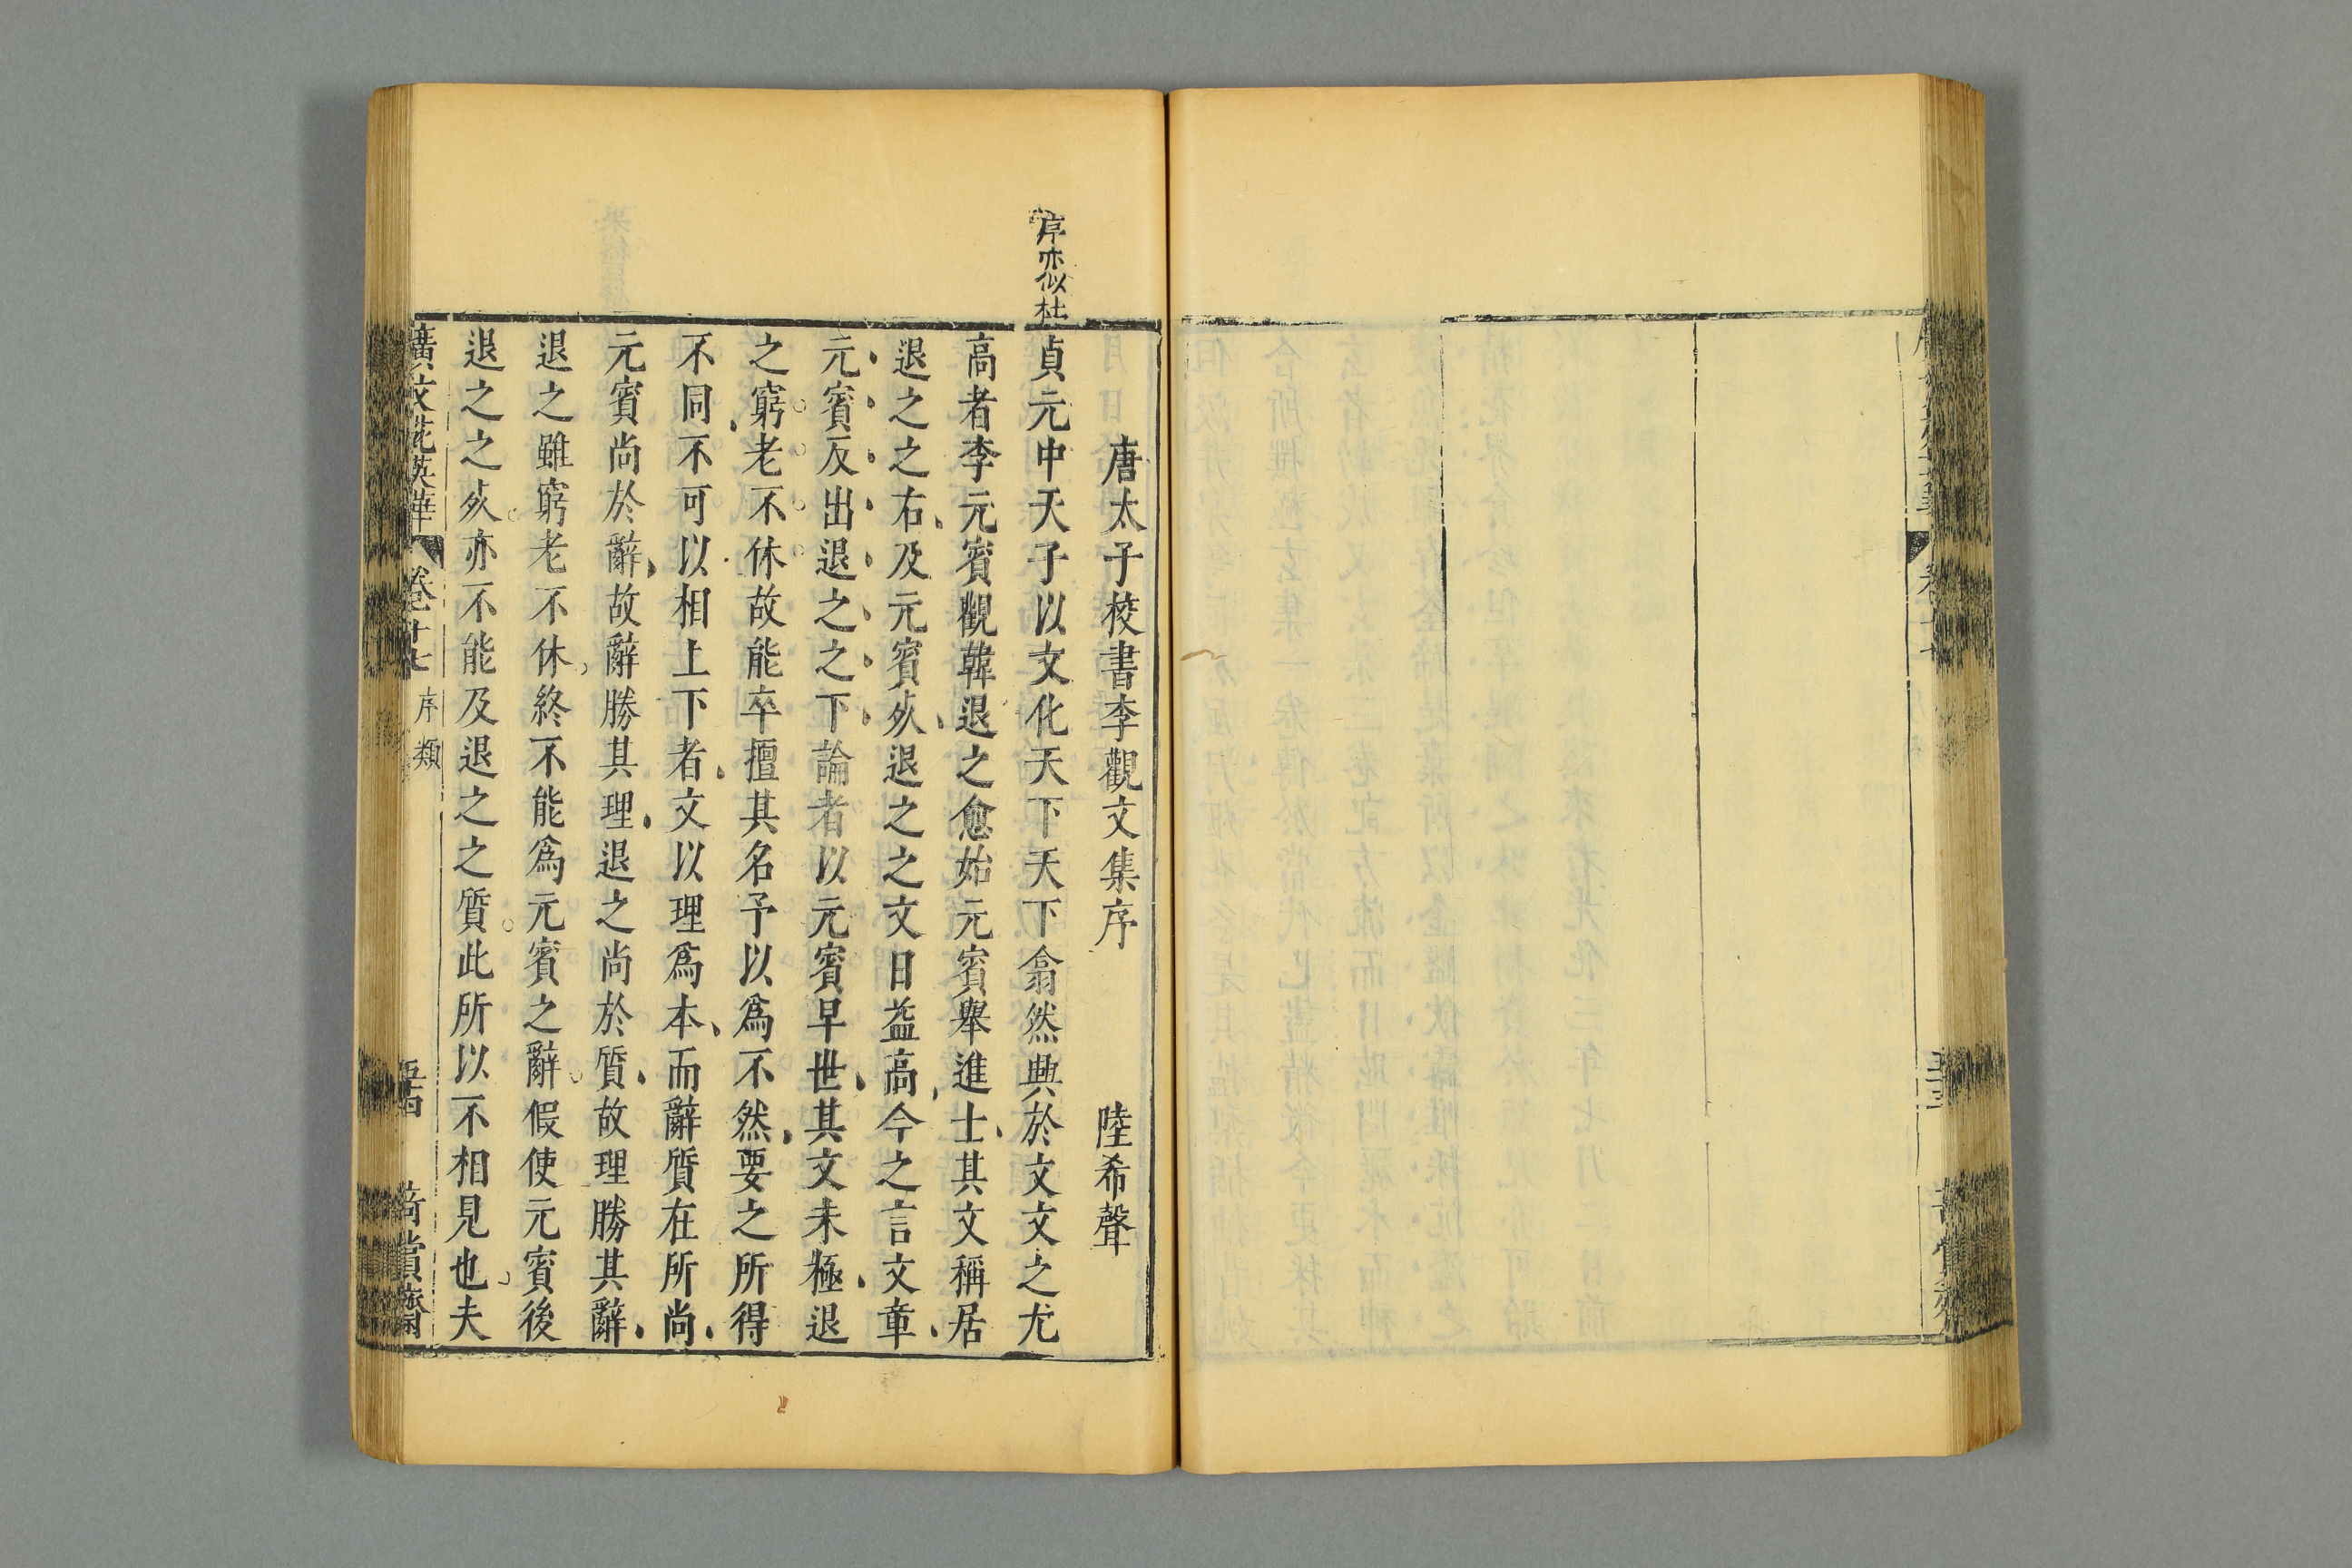 序亦似杜
唐太子校書李觀文集序　陸希聲
貞元中天子以文化天下天下翕然興於文文之尤
高者李元賓觀韓退之愈始元賓舉進士其文稱居
退之之右及元賓歿退之之文日益高今之言文章
元賓反出退之之下論者以元賓早世其文未極退
之窮老不休故能卒擅其名予以爲不然要之所得
不同不可以相上下者文以理爲本而辭質在所尚
元賓尚於辭故辭勝其理退之尚於質故理勝其辭
退之雖窮老不休終不能爲元賓之辭假使元賓後
退之之歿亦不能及退之之質此所以不相見也夫
廣文苑英華　卷十七　序類　五十四